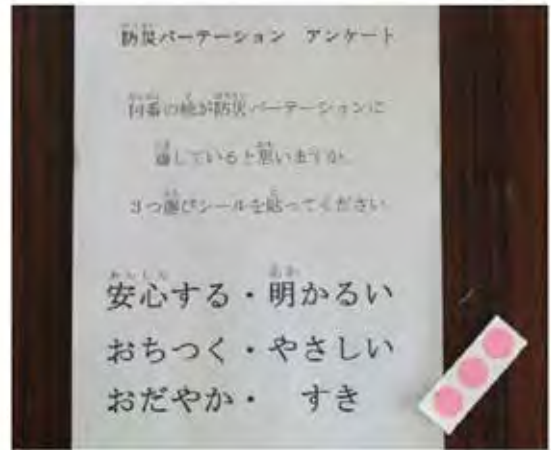 防災パーテーション　アンケート
何番の絵が防災パーテーションに
適していると思いますか。
3つ選びシールを貼ってください
安心する・明かるい
おちつく・やさしい
おだやか・　すき